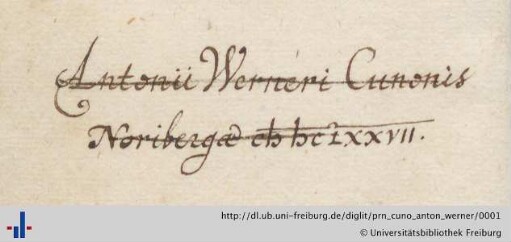 Antonii Werneri Cunonis
Noribergæ
http://dl.ub.uni-freiburg.de/diglit/prn_cuno_anton_werner/0001
© Universitätsbibliothek Freiburg